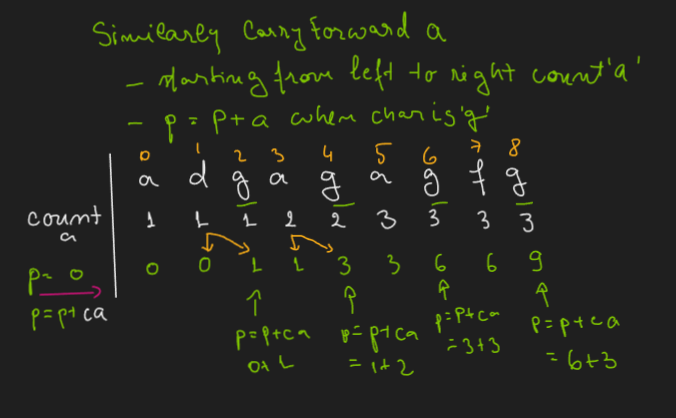 Similarly Carry forward a
- starting from left to right count 'a'
- p = p+a when char is 'g'
0 1 2 3 4 5 6 7 8
a d g a g a g f g
count a 1 1 1 2 2 3 3 3 3
p= 0 0 0 1 1 3 3 6 6 9
p=p+ca
p=p+ca p=p+ca p=p+ca p=p+ca
0+1 =1+2 =3+3 =6+3